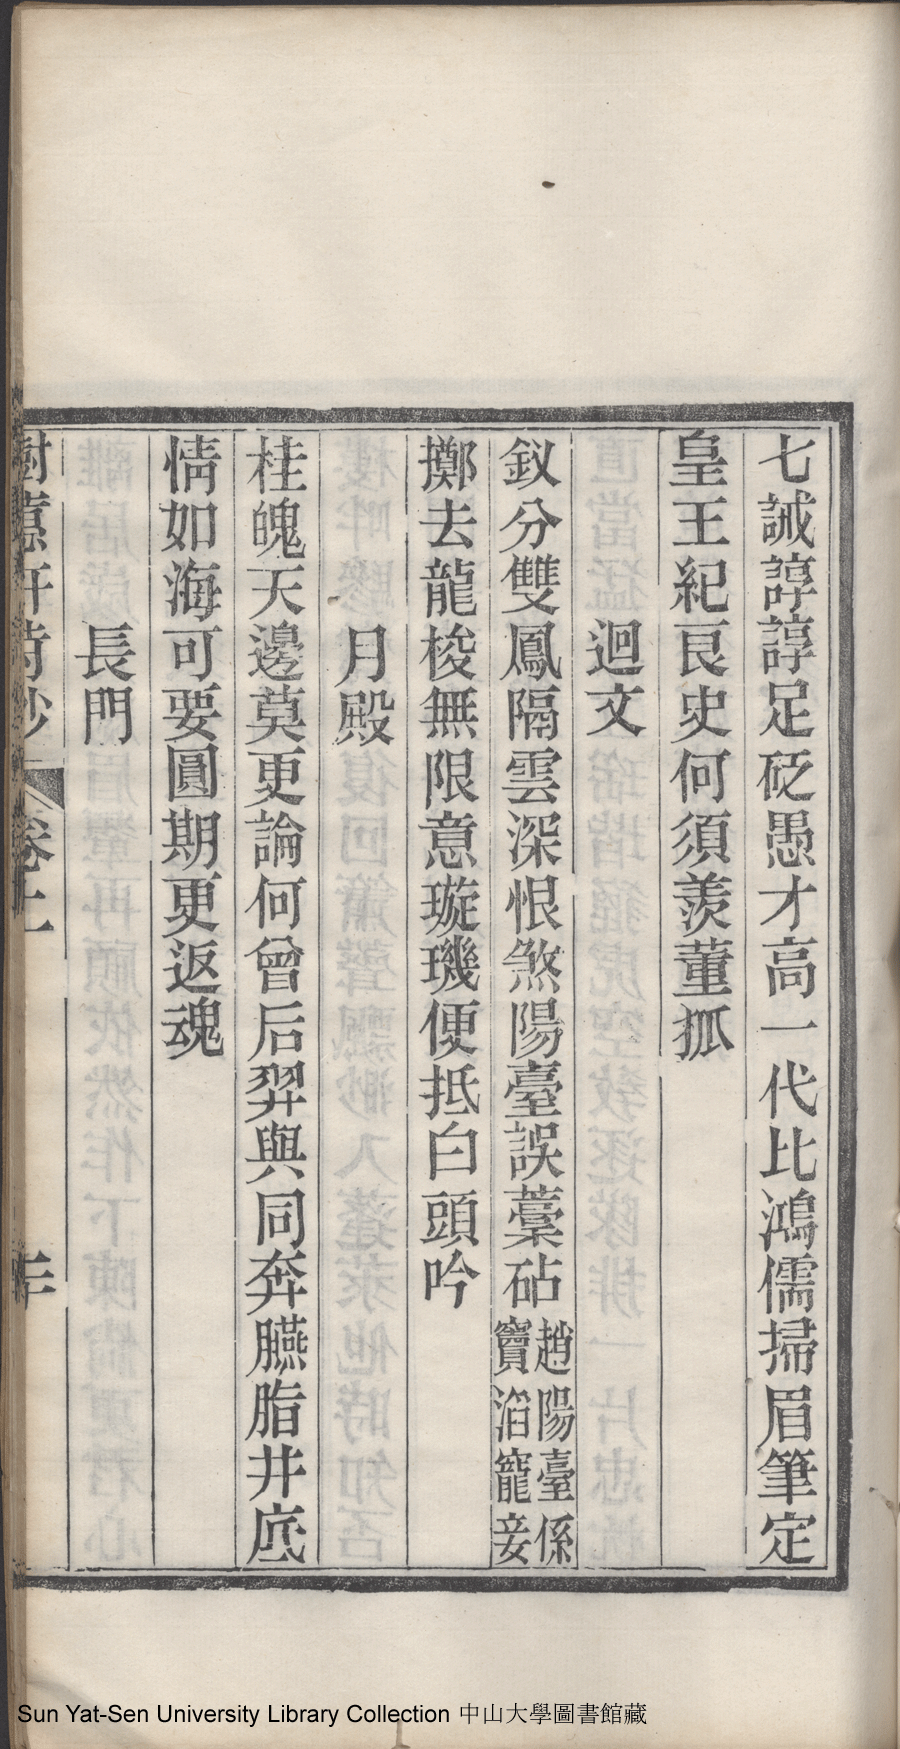 七誡諄諄足砭愚才高一代比鴻儒掃眉筆定
皇王紀良史何須羨董狐
迴文
釵分雙鳳隔雲深恨煞陽臺誤藁砧趙陽臺係竇滔寵妾
擲去龍梭無限意璇璣便抵白頭吟
月殿
桂魄天邊莫更論何曾后羿與同奔臙脂井底
情如海可要圓期更返魂
長門
軒詩鈔 卷上 二十
Sun Yat-Sen University Library Collection 中山大學圖書館藏